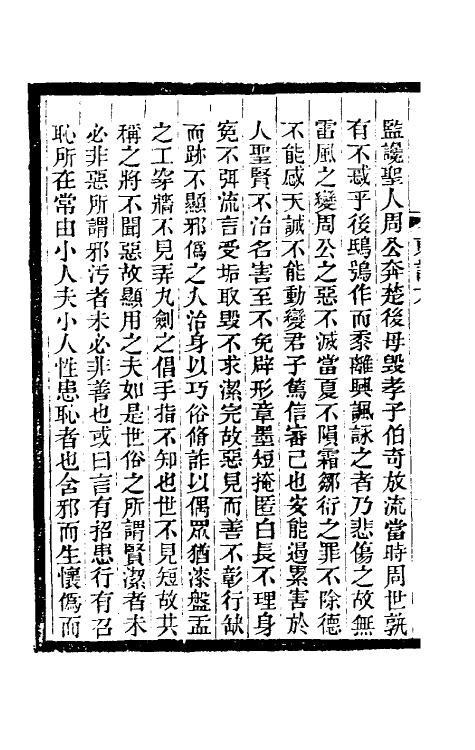 監讒聖人周公奔楚後母毀孝子伯奇放流當時周世孰
有不惑乎後鴟鴞作而黍離興諷詠之者乃悲傷之故無
雷風之變周公之惡不滅當夏不隕霜鄒衍之罪不除德
不能感天誠不能動變君子篤信審己也安能遏累害於
人聖賢不治名害至不免辟形章墨短掩匿白長不理身
冤不弭流言受垢取毀不求潔完故惡見而善不彰行缺
而跡不顯邪僞之人治身以巧俗脩詐以偶眾猶漆盤盂
之工穿牆不見弄丸劍之倡手指不知也世不見短故共
稱之將不聞惡故顯用之夫如是世俗之所謂賢潔者未
必非惡所謂邪污者未必非善也或曰言有招患行有召
恥所在常由小人夫小人性患恥者也含邪而生懷僞而